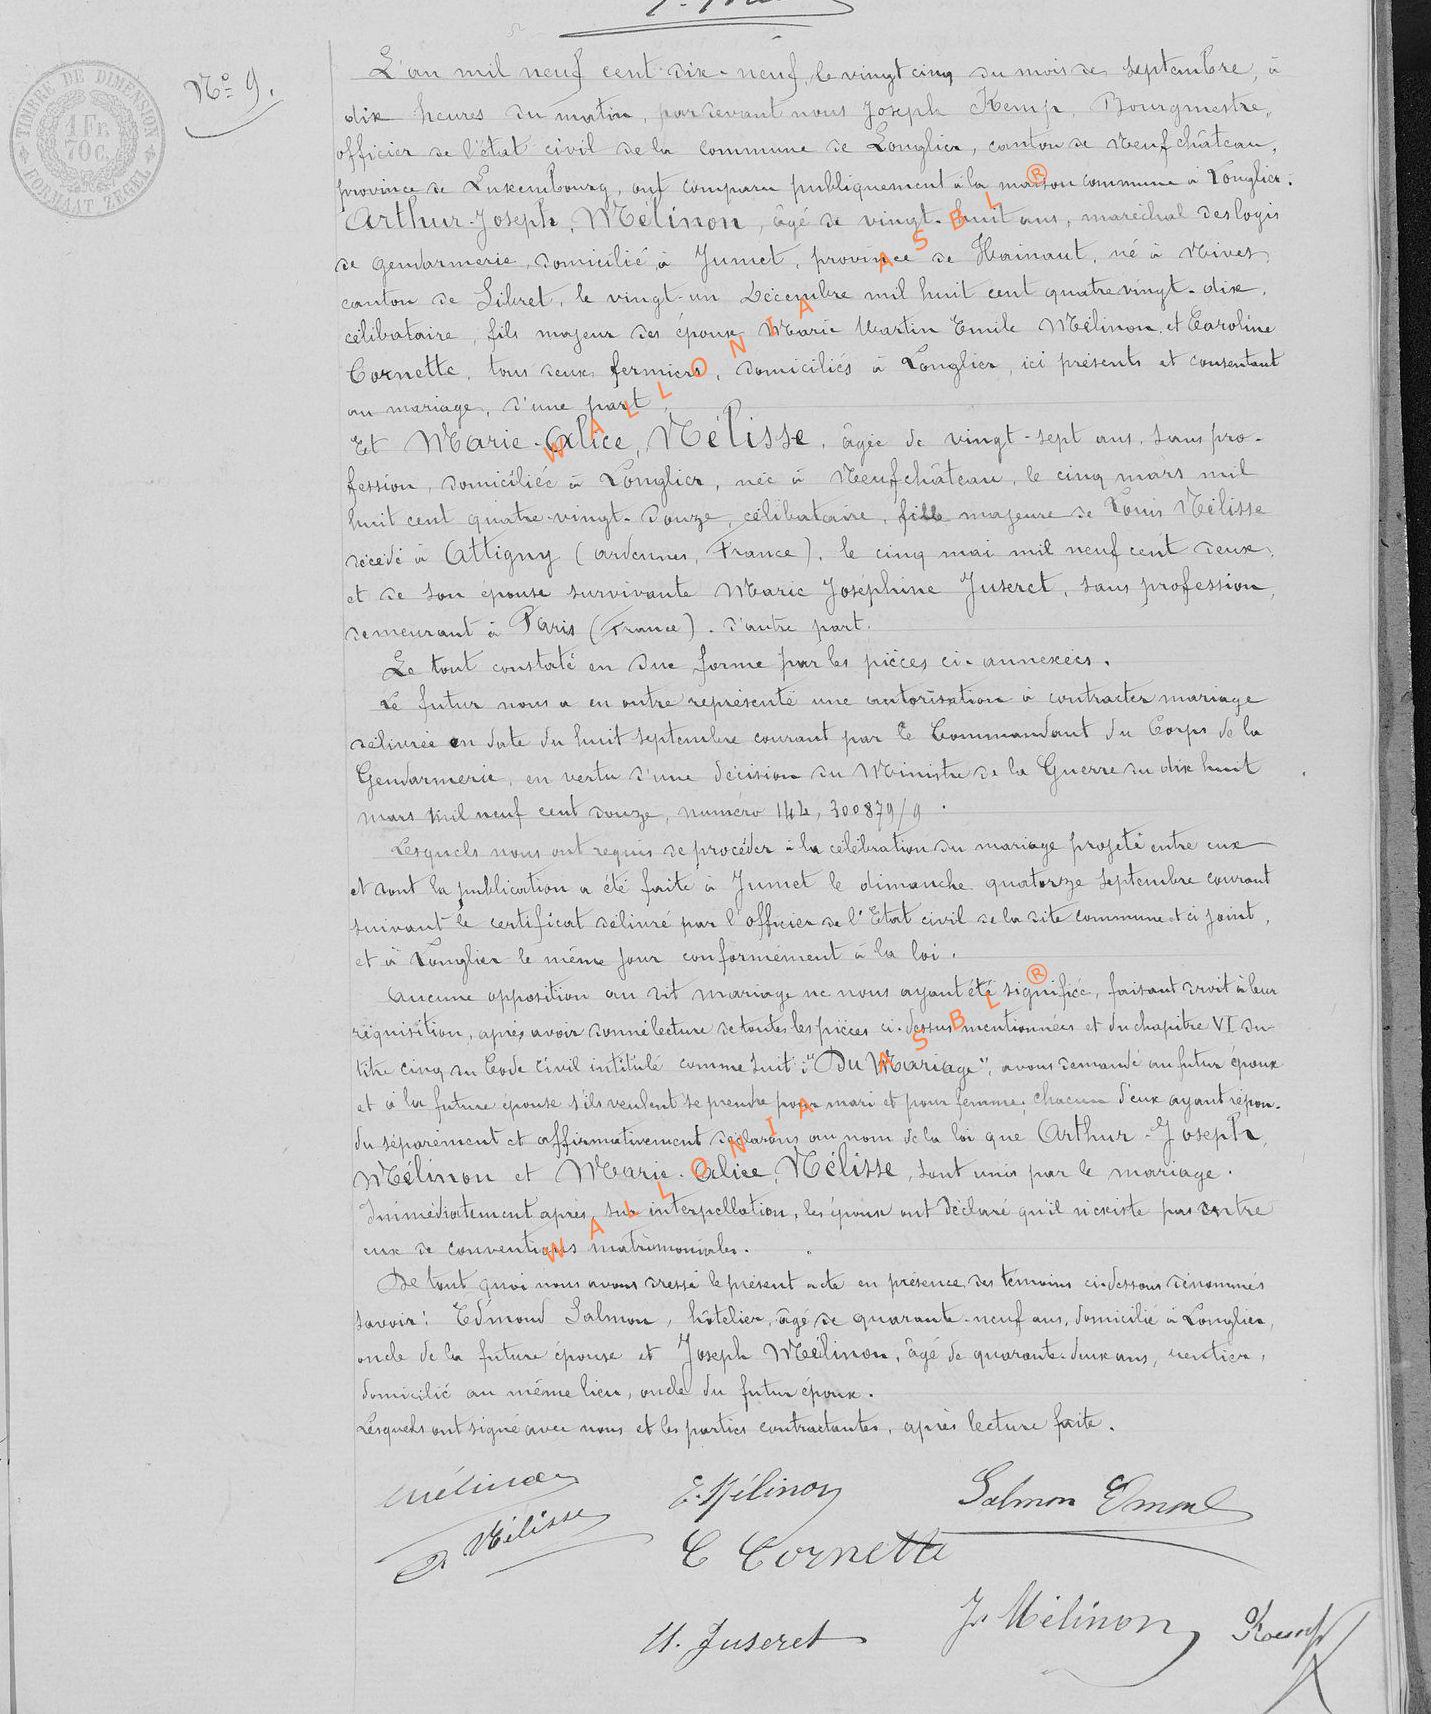 TIMBRE DE DIMENSION
1 Fr. 70 C.
FORMAAT ZEGEL
No 9.
L'an mil neuf cent dix-neuf, le vingt cinq du mois de septembre, à
dix heures du matin, par devant nous Joseph Kemp, Bourgmestre,
officier de l'état civil de la commune de Longlier, canton de Neufchâteau,
province de Luxembourg, ont comparu publiquement à la maison commune à Longlier:
Arthur-Joseph, Mélinon, âgé de vingt-huit ans, maréchal des logis
de gendarmerie, domicilié à Jumet, province de Hainaut, né à Nives,
canton de Sibret, le vingt-un Décembre mil huit cent quatre vingt-dix,
célibataire, fils majeur des époux Marie Martin Emile Mélinon, et Caroline
Cornette, tous deux fermiers, domiciliés à Longlier, ici présents et consentant
au mariage, d'une part
Et Marie-Alice, Nélisse, âgée de vingt-sept ans, sans pro-
fession, domiciliée à Longlier, née à Neufchâteau, le cinq mars mil
huit cent quatre-vingt-douze, célibataire, fille majeure de Louis Nélisse
décédé à Attigny (Ardennes, France), le cinq mai mil neuf cent deux,
et de son épouse survivante Marie Joséphine Juseret, sans profession,
demeurant à Paris (France). d'autre part.
Le tout constaté en due forme par les pièces ci-annexées.
Le futur nous a en outre représenté une autorisation à contracter mariage
délivrée en date du huit septembre courant par le Commandant du Corps de la
Gendarmerie, en vertu d'une décision du Ministre de la Guerre du dix huit
mars mil neuf cent douze, numéro 144, 300879/9.
Lesquels nous ont requis de procéder à la célébration du mariage projeté entre eux
et dont la publication a été faite à Jumet le dimanche quatorze septembre courant
suivant le certificat délivré par l'officier de l'Etat civil de la dite commune et ci joint,
et à Longlier le même jour conformément à la loi.
Aucune opposition au dit mariage ne nous ayant été signifiée, faisant droit à leur
réquisition, après avoir donné lecture de toutes les pièces ci-dessus mentionnées et du chapitre VI du
titre cinq du Code Civil intitulé comme suit: "Du Mariage", avons demandé au futur époux
et à la future épouse s'ils veulent se prendre pour mari et pour femme; chacun d'eux ayant répon-
du séparément et affirmativement déclarons au nom de la loi que Arthur-Joseph,
Mélinon et Marie-Alice, Nélisse, sont unis par le mariage.
Immédiatement après, sur interpellation, les époux ont déclaré qu'il n'existe pas entre
eux de conventions matrimoniales.
De tout quoi nous avons dressé le présent acte en présence des témoins ci-dessous dénommés
savoir: Edmond Salmon, hôtelier, âgé de quarante-neuf ans, domicilié à Longlier,
oncle de la future épouse et Joseph Mélinon, âgé de quarante-deux ans, rentier,
domicilié au même lieu, oncle du futur époux.
Lesquels ont signé avec nous et les parties contractantes, après lecture faite.
Mélinon E. Mélinon Salmon Emond
A. Nélisse C Cornette
M. Juseret J. Mélinon Kemp
WALLONIA ASBL ®
WALLONIA ASBL ®